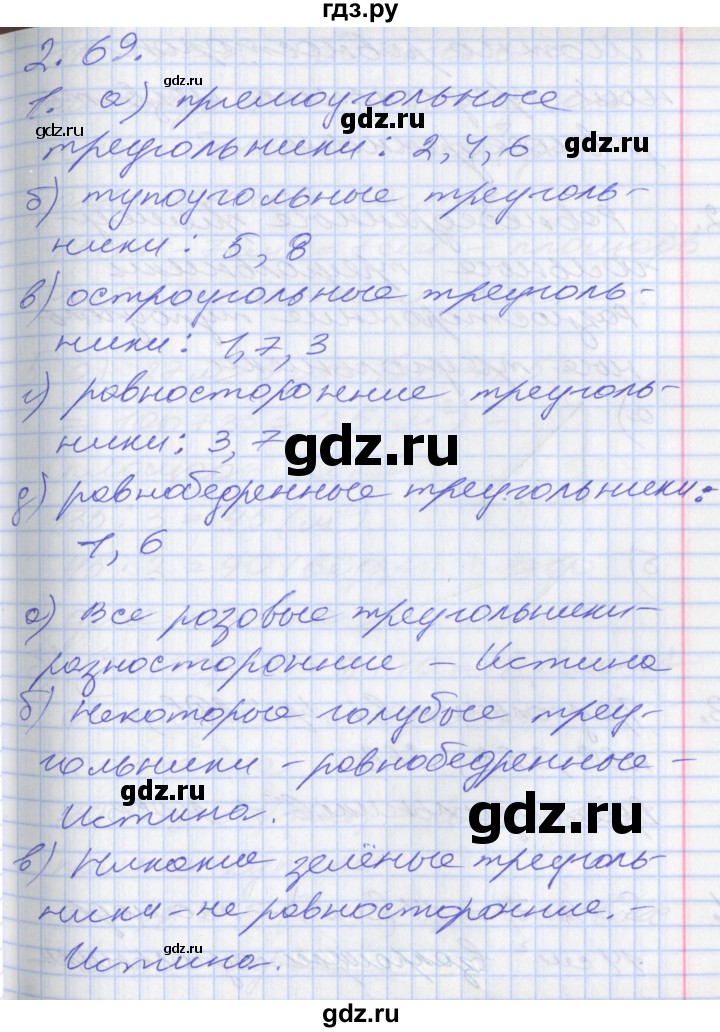 гдз.ру
2.69.
gdz.ru
1. а) прямоугольные
gdz.ru
gdz.ru
треугольники: 2, 4, 6
gdz.ru
б) тупоугольные треуголь-
ники: 5, 8
gdz.ru
в) остроугольные треуголь-
ники: 1, 7, 3
gdz.ru
г) равносторонние треуголь-
ники: 3, 7
gdz.ru
gdz.ru
д) равнобедренные треугольники:
1, 6
gdz.ru
а) Все розовые треугольники-
разносторонние - Истина
gdz.ru
б) Некоторые голубые треу-
гольники - равнобедренные -
gdz.ru
Истина.
gdz.ru
в) Никакие зелёные треуголь-
ники - не равносторонние. -
Истина.
gdz.ru
gdz.ru